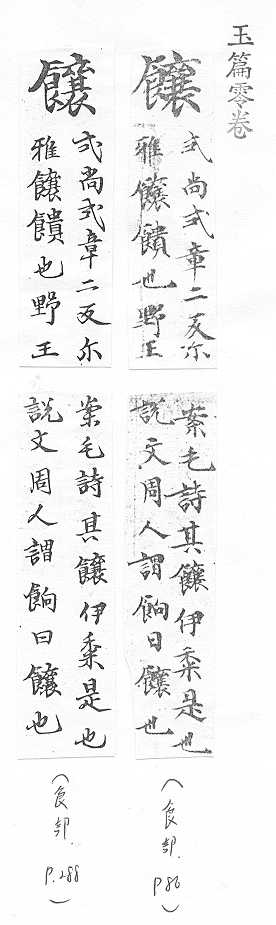 玉篇零卷
饟
式尚式章二反尒
雅饟饋也野王
案毛詩其饟伊黍是也
說文周人謂餉曰饟也
(食部. P86)
饟
式尚式章二反尒
雅饟饋也野王
案毛詩其饟伊黍是也
說文周人謂餉曰饟也
(食部. P.288)